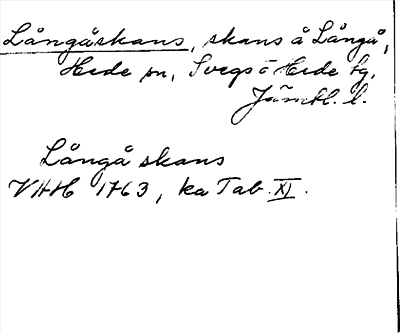 Långåskans, skans å Långå,
Hede sn, Svegs o Hede tg,
Jämtl. l.
Långå skans
VHH 1763, ka Tab. XI.